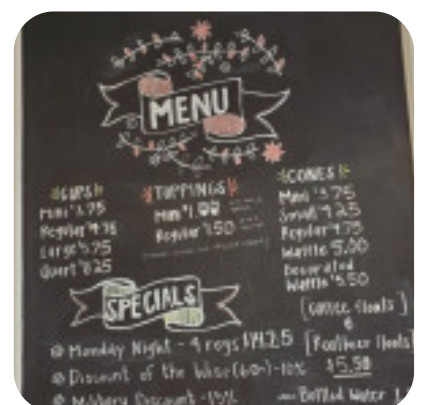 MENU
CUPS
Mini $3.75
Regular $4.75
Large $5.75
Quart $8.25
TOPPINGS
Mini $1.00
Regular 1.50
CONES
Mini $3.75
Small 4.25
Regular 4.75
Waffle 5.00
Decorated
Waffle $5.50
SPECIALS
@ Monday Night - 4 regs $14.25
@ Discount of the Wise (60+) - 10%
@ Military Discount - 15%
[Coffee floats]
&
[Rootbeer floats]
$5.50
Bottled Water